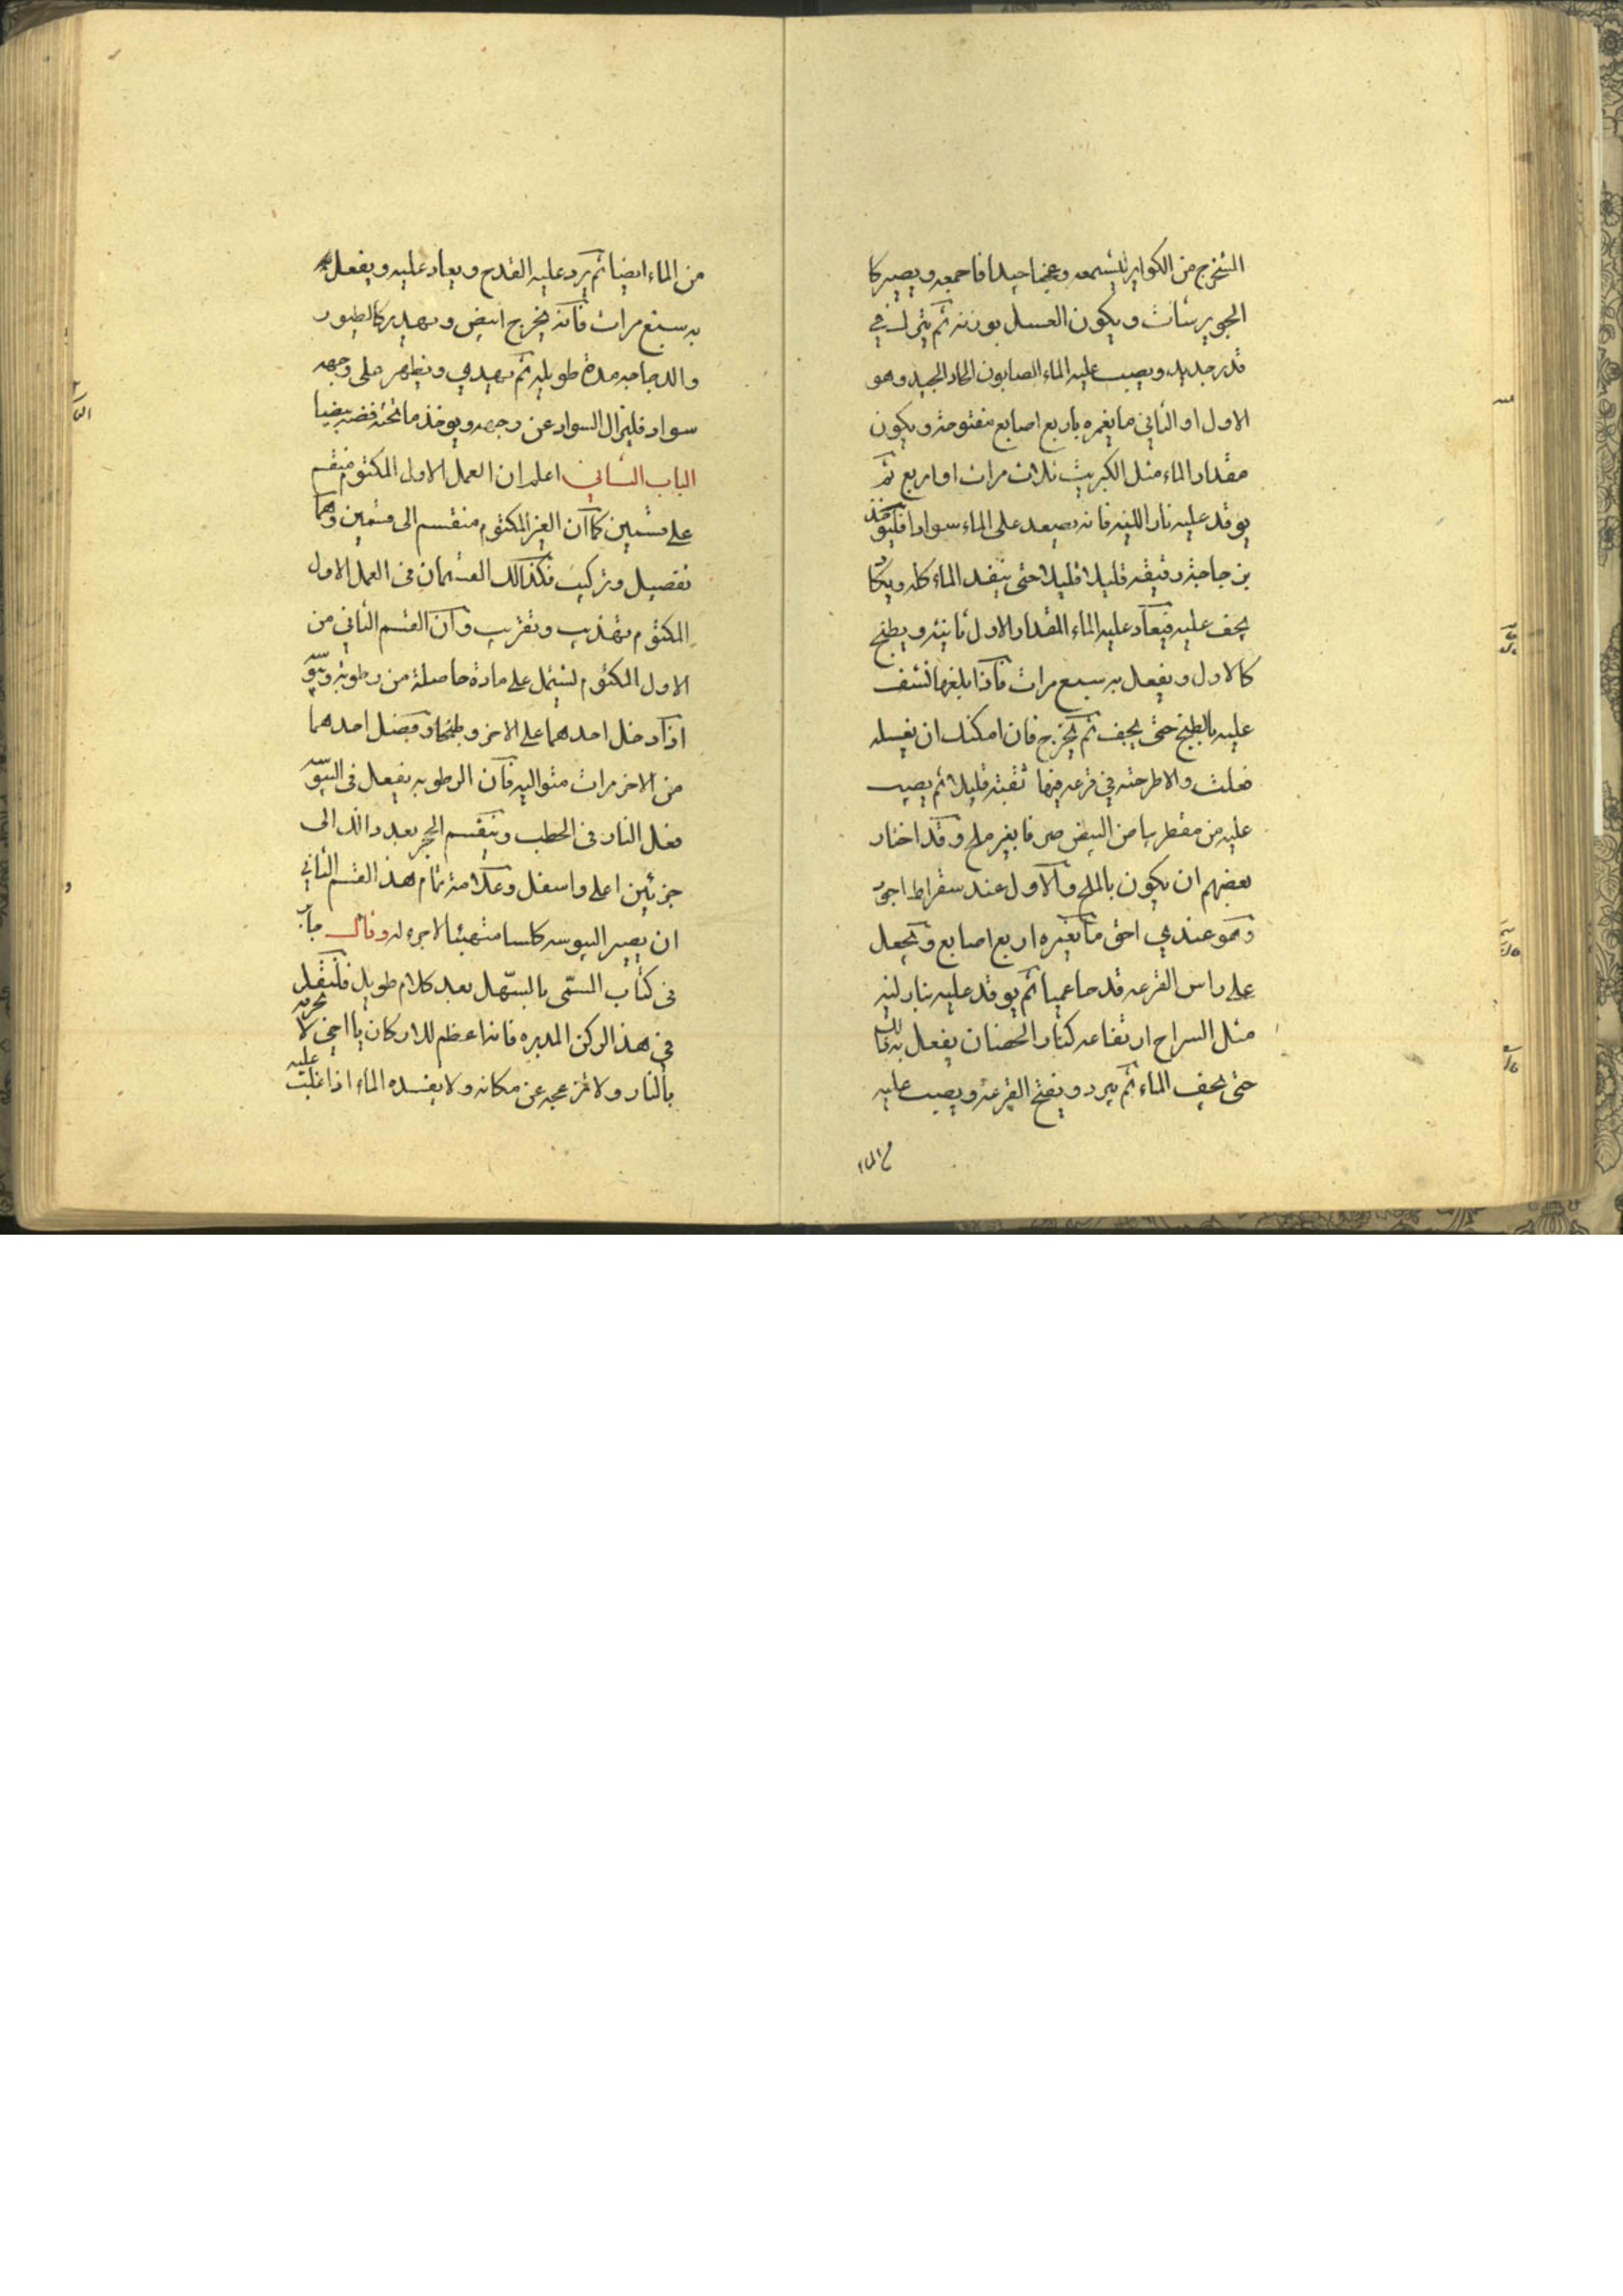 المستخرج من الكواير بشمعه وعجنا جيدا فاجمعه ويصير كا
الجويرسات ويكون العسل بوزنه ثم يترك في
قدر جديد ويصب عليه الماء الصابون الحاد الجيد وهو
الاول او الثاني ما يغمره باربع اصابع مفتوحة ويكون
مقدار الماء مثل الكبريت ثلاث مرات او اربع ثم
يوقد عليه نار اللينه فانه يصعد على الماء سوادا فليؤخذ
بزجاجة رقيقه قليلا قليلا حتى ينفد الماء كله ويكا
يجف عليه فيعاد عليه الماء المقدار الاول ثانية ويطبخ
كالاول ويفعل به سبع مرات فاذا بلغها نشف
عليه بالطبخ حتى يجف ثم يخرج فان امكنك ان تغسله
فعلت والا طرحته في قرعه فيها ثقبته قليلا ثم يصب
عليه من مقطر بياض البيض صرفا بغير ملح وقد اختار
بعضهم ان يكون بالملح والاول عند سقراط اجود
وهو عندي احق ما يغمره اربع اصابع ويجعل
على راس القرعه قدحا عميا ثم يوقد عليه بنار لينه
مثل السراج ارتفاعه كنار الحضنان يفعل به ذلك
حتى يجف الماء ثم يبرد ويفتح القرعة ويصب عليه
من الماء
من الماء ايضا ثم يرد عليه القدح ويعاد عليه ويفعل
به سبع مرات فانه يخرج ابيض ويهدير كالطيور
والدجاجه مدة طويله ثم يهدي ويظهر على وجهه
سواد فليزال السواد عن وجهه ويوخذ ما تحته فضه بيضا
الباب الثاني اعلم ان العمل الاول المكتوم منقسم
على قسمين كما ان الغير المكتوم منقسم الى قسمين وهما
تفصيل وتركيب فكذالك القسمان في العمل الاول
المكتوم تهذيب وتقريب وان القسم الثاني من
الاول المكتوم يشتمل على مادة حاصلة من رطوبة ويبوسه
اذا دخل احدهما على الاخر وطبخا وفضل احدهما
من الاخر مرات متواليه فان الرطوبه يفعل في اليبوسه
فعل النار في الحطب وينقسم الحجر بعد ذالك الى
جزئين اعلى واسفل وعلامة تمام هذ القسم الثاني
ان يصير اليبوسه كلسا متهيئا لا جره له وقال جابر
في كتاب المسمى بالسهل بعد كلام طويل فلنقل
في هذ الركن المدبره فانه اعظم للاركان يا اخي لا تحرقه
بالنار ولا تزعجه عن مكانه ولا يفسده الماء اذا غلبت عليه